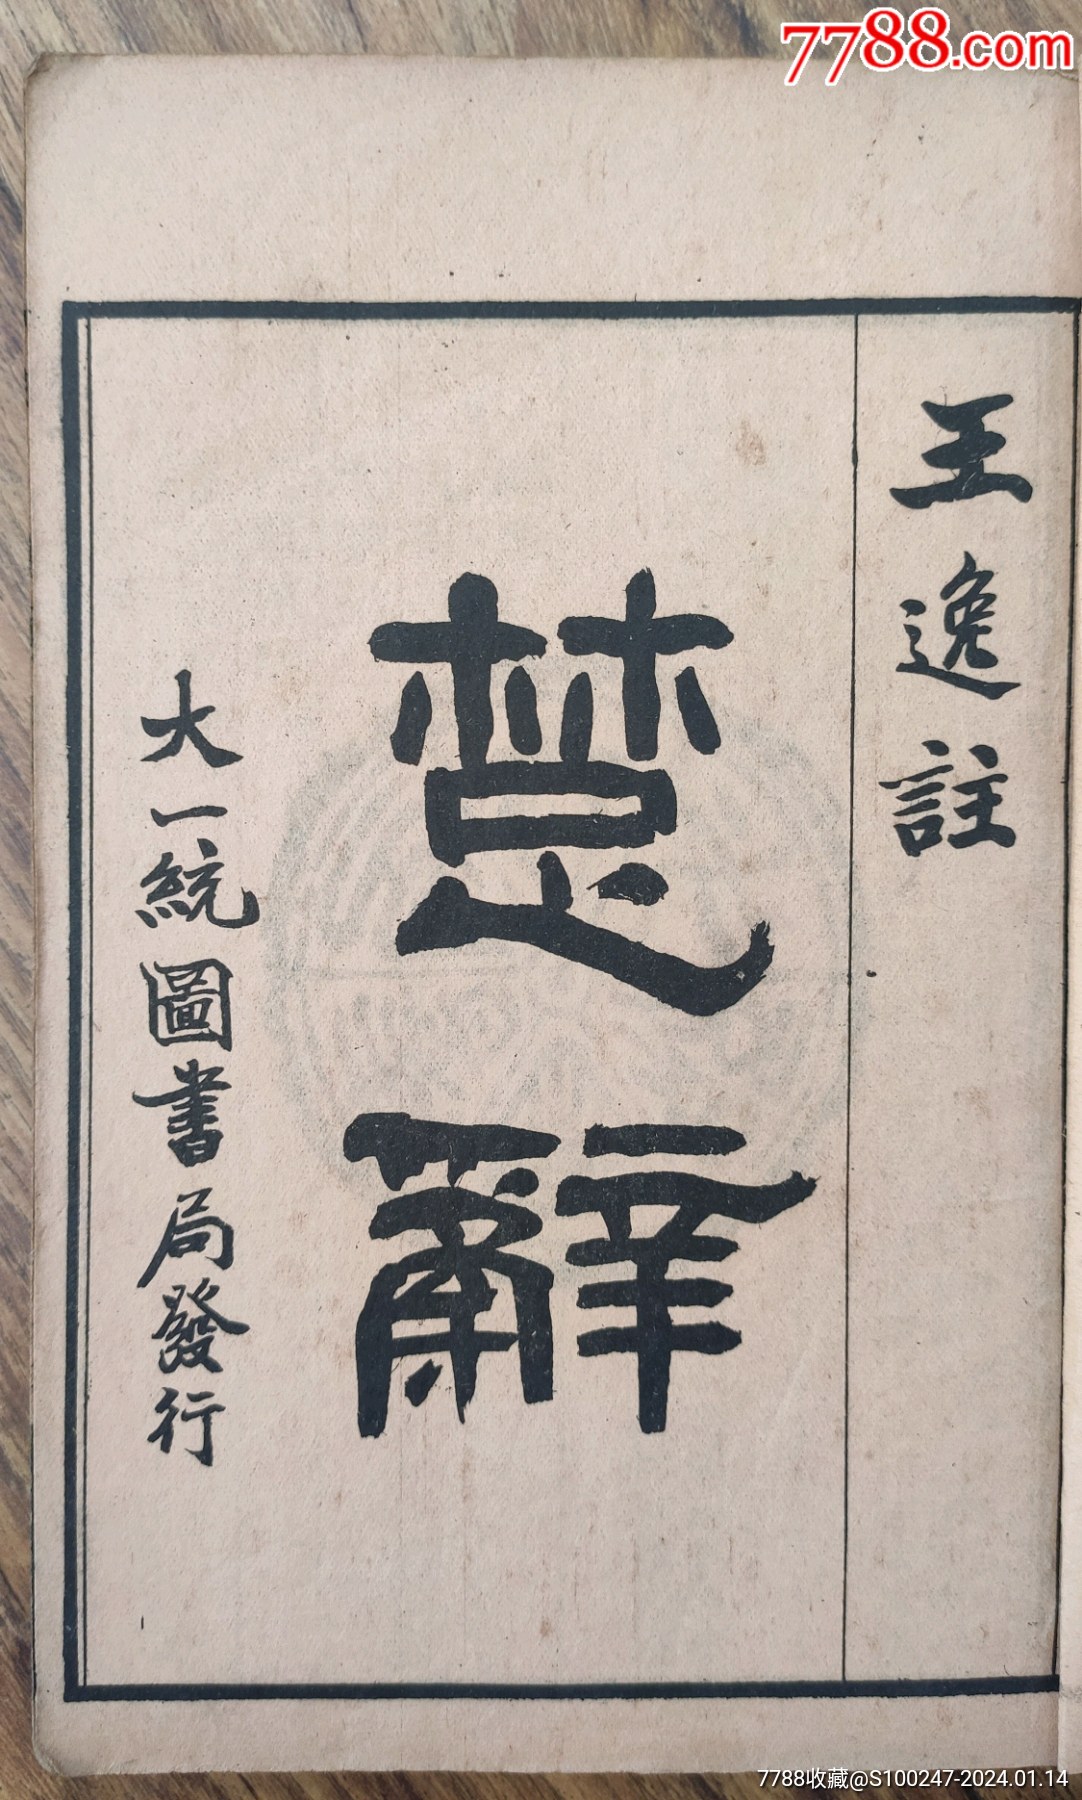 7788.com
王逸註
楚辭
大一統圖書局發行
7788收藏@S100247-2024.01.14